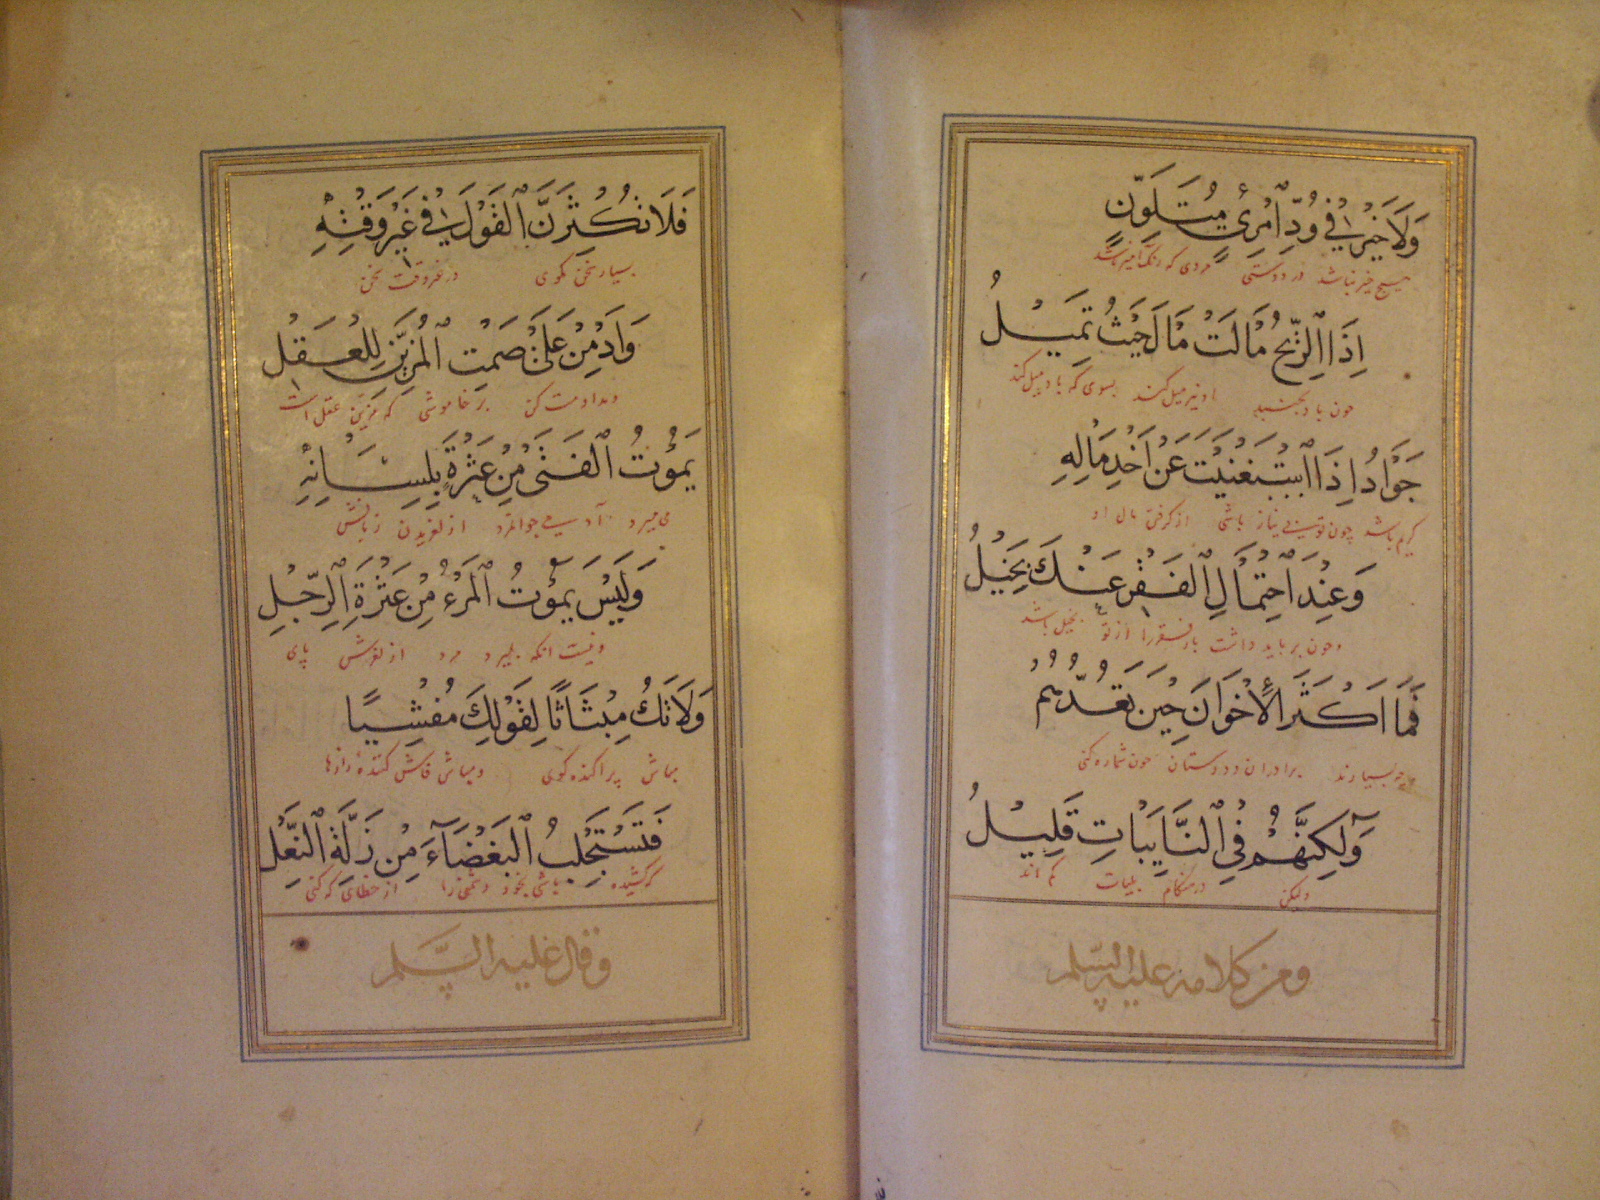 وَلَا خَيْرَ فِي وُدِّ امْرِئٍ مُتَلَوِّنٍ
هیچ خیر نباشد در دوستی مردی که رنگ آمیز باشد
اِذَا الرِّيحُ مَالَتْ مَالَ حَيْثُ تَمِيلُ
چون باد بجنبد او نیز میل کند بسوی که باد میل کند
جَوَادُ اِذَا اسْتَغْنَيْتَ عَنْ اَخْذِ مَالِهِ
کریم باشد چون تو بی نیاز باشی از گرفتن مال او
وَعِنْدَ احْتِمَالِ الْفَقْرِ عَنْكَ بَخِيلُ
و چون بر باید داشت بار فقر را از تو بخیل باشد
فَمَا اَكْثَرَ الْأِخْوَانَ حِينَ تَعُدُّهُمُ
چه بسیارند برادران و دوستان چون شماره کنی
وَلَكِنَّهُمْ فِي النَّايِبَاتِ قَلِيلُ
ولیکن در هنگام بلیات کم اند
ومن كلامه عليه السلم
فَلَا تُكْثِرَنَّ الْقَوْلَ فِي غَيْرِ وَقْتِهِ
بسیار سخن مگوی در غیر وقت سخن
وَاَدْمِنْ عَلَى صَمْتِ الْمُزَيِّنِ لِلْعَقْلِ
و مداومت کن بر خاموشی که مزین عقل است
يَمُوتُ الْفَتَى مِنْ عَثْرَةٍ بِلِسَانِهِ
می میرد آدمی جوانمرد از لغزیدن زبانش
وَلَيْسَ يَمُوتُ الْمَرْءُ مِنْ عَثْرَةِ الرِّجْلِ
و نیست آنکه بمیرد مرد از لغزش پای
وَلَا تَكُ مِبْثَاثًا لِقَوْلِكَ مُفْشِيًا
مباش پراکنده گوی و مباش فاش کننده رازها
فَتَسْتَجْلِبُ الْبَغْضَآءَ مِنْ زَلَّةِ النَّعْلِ
که کشیده باشی بخود دشمنی را از خطای که کنی
وقال عليه السلم